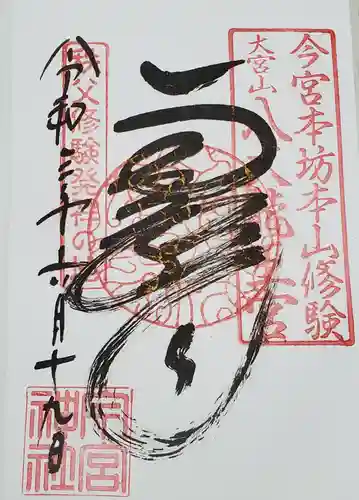 今宮本坊本山修験
大宮山八大龍王宮
秩父修験発祥の地
令和三年六月十九日
今宮
神社